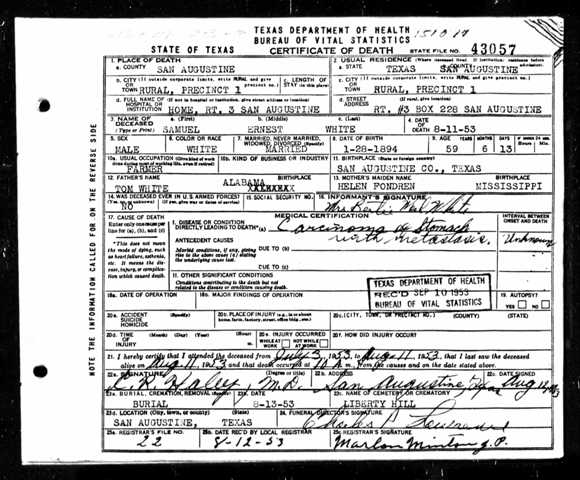 TEXAS DEPARTMENT OF HEALTH
BUREAU OF VITAL STATISTICS
STATE OF TEXAS CERTIFICATE OF DEATH STATE FILE NO. 43057
1. PLACE OF DEATH 2. USUAL RESIDENCE (Where deceased lived. If institution: residence before admission).
a. COUNTY SAN AUGUSTINE a. STATE TEXAS b. COUNTY SAN AUGUSTINE
b. CITY (If outside corporate limits, write RURAL and give precinct no.) c. LENGTH OF STAY (in this place) c. CITY (If outside corporate limits, write RURAL and give precinct no.)
OR TOWN RURAL, PRECINCT 1 OR TOWN RURAL, PRECINCT 1
d. FULL NAME OF HOSPITAL OR INSTITUTION (If not in hospital or institution, give street address or location) d. STREET ADDRESS (If rural, give location)
HOME, RT. 3 SAN AUGUSTINE RT. #3 BOX 228 SAN AUGUSTINE
3. NAME OF DECEASED a. (First) b. (Middle) c. (Last) 4. DATE OF DEATH
(Type or Print) SAMUEL ERNEST WHITE 8-11-53
5. SEX 6. COLOR OR RACE 7. MARRIED, NEVER MARRIED, WIDOWED, DIVORCED (Specify) 8. DATE OF BIRTH 9. AGE
MALE WHITE MARRIED 1-28-1894 59 6 13
10a. USUAL OCCUPATION (Give kind of work done during most of working life, even if retired) 10b. KIND OF BUSINESS OR INDUSTRY 11. BIRTHPLACE (State or foreign country)
FARMER SAN AUGUSTINE CO., TEXAS
12. FATHER'S NAME BIRTHPLACE 13. MOTHER'S MAIDEN NAME BIRTHPLACE
TOM WHITE ALABAMA HELEN FONDREN MISSISSIPPI
14. WAS DECEASED EVER IN U.S. ARMED FORCES? 15. SOCIAL SECURITY NO. 16. INFORMANT'S SIGNATURE
NO Mrs Bertie Mal White
17. CAUSE OF DEATH MEDICAL CERTIFICATION INTERVAL BETWEEN ONSET AND DEATH
Enter only one cause per line for (a), (b), and (c) I. DISEASE OR CONDITION DIRECTLY LEADING TO DEATH* (a) Carcinoma of Stomach
with metastasis. Unknown
*This does not mean the mode of dying, such as heart failure, asthenia, etc. It means the disease, injury, or complication which caused death. ANTECEDENT CAUSES DUE TO (b)
Morbid conditions, if any, giving rise to the above cause (a) stating the underlying cause last. DUE TO (c)
II. OTHER SIGNIFICANT CONDITIONS
Conditions contributing to the death but not related to the disease or condition causing death.
TEXAS DEPARTMENT OF HEALTH
REC'D SEP 10 1953
BUREAU OF VITAL STATISTICS
18a. DATE OF OPERATION 18b. MAJOR FINDINGS OF OPERATION 19. AUTOPSY?
YES NO
20a. ACCIDENT SUICIDE HOMICIDE 20b. PLACE OF INJURY 20c. (CITY, TOWN, OR PRECINCT NO.) (COUNTY) (STATE)
20d. TIME OF INJURY (Month) (Day) (Year) (Hour) 20e. INJURY OCCURRED WHILE AT WORK NOT WHILE AT WORK 20f. HOW DID INJURY OCCUR?
21. I hereby certify that I attended the deceased from July 3, 1953, to Aug 11, 1953, that I last saw the deceased
alive on Aug 11, 1953, and that death occurred at from the causes and on the date stated above.
22a. SIGNATURE (Degree or title) 22b. ADDRESS 22c. DATE SIGNED
C. R. Haley, M.D. San Augustine, Texas
23a. BURIAL, CREMATION, REMOVAL (Specify) 23b. DATE 23c. NAME OF CEMETERY OR CREMATORY
BURIAL 8-13-53 LIBERTY HILL
23d. LOCATION (City, town, or county) (State) 24. FUNERAL DIRECTOR'S SIGNATURE
SAN AUGUSTINE, TEXAS
25a. REGISTRAR'S FILE NO. 25b. DATE REC'D BY LOCAL REGISTRAR 25c. REGISTRAR'S SIGNATURE
22 8-12-53 Marlon Minton J.P.
NOTE THE INFORMATION CALLED FOR ON THE REVERSE SIDE